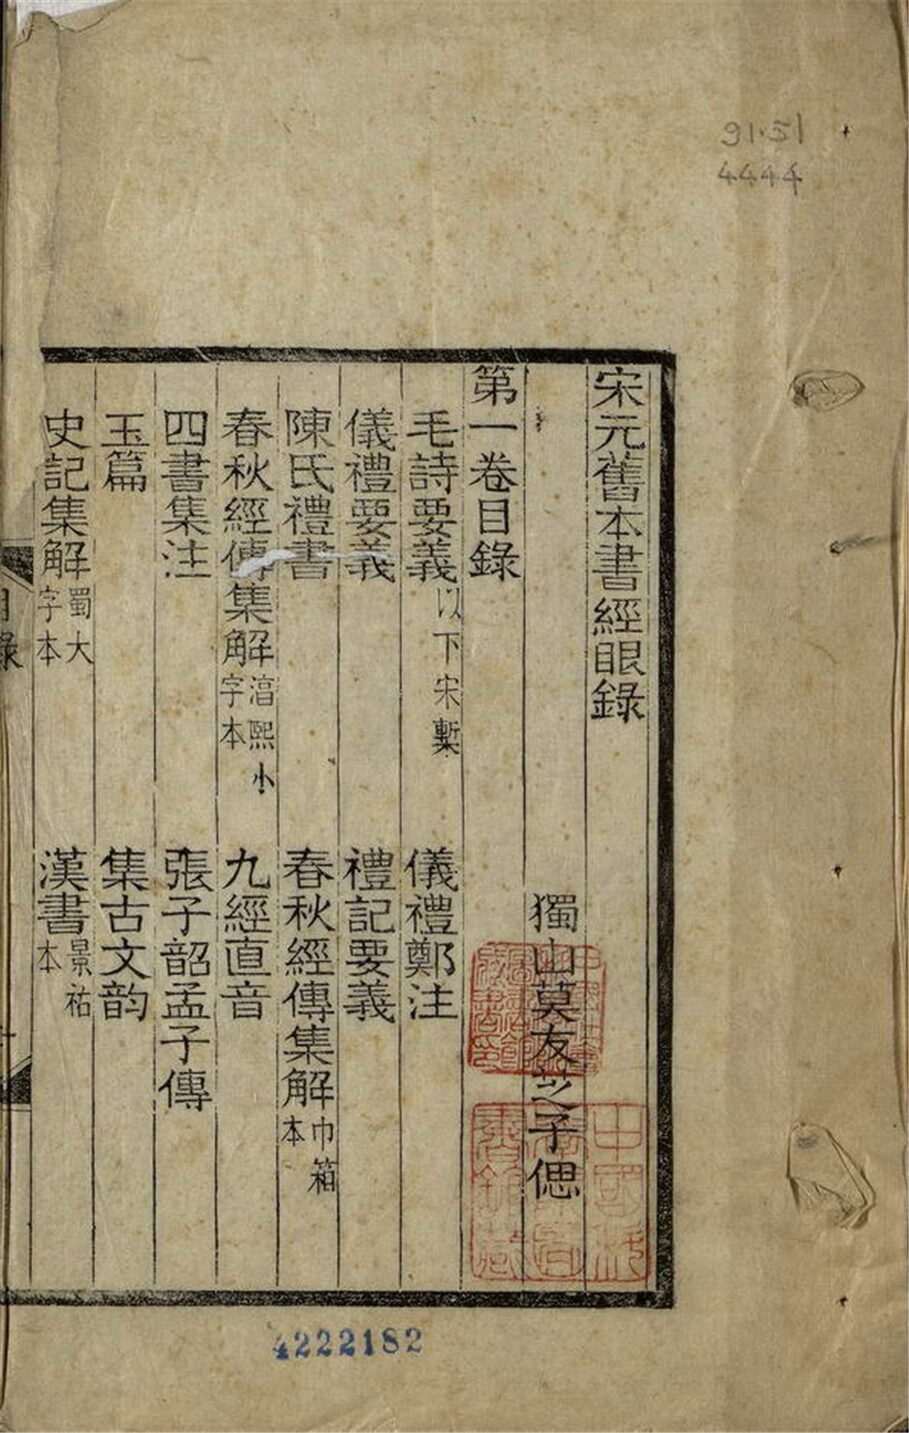 91.51
4444
宋元舊本書經眼錄
獨山莫友芝子偲
第一卷目錄
毛詩要義以下宋槧 儀禮鄭注
儀禮要義 禮記要義
陳氏禮書 春秋經傳集解巾箱本
春秋經傳集解淳熙小字本 九經直音
四書集注 張子韶孟子傳
玉篇 集古文韵
史記集解蜀大字本 漢書景祐本
目錄
4222182